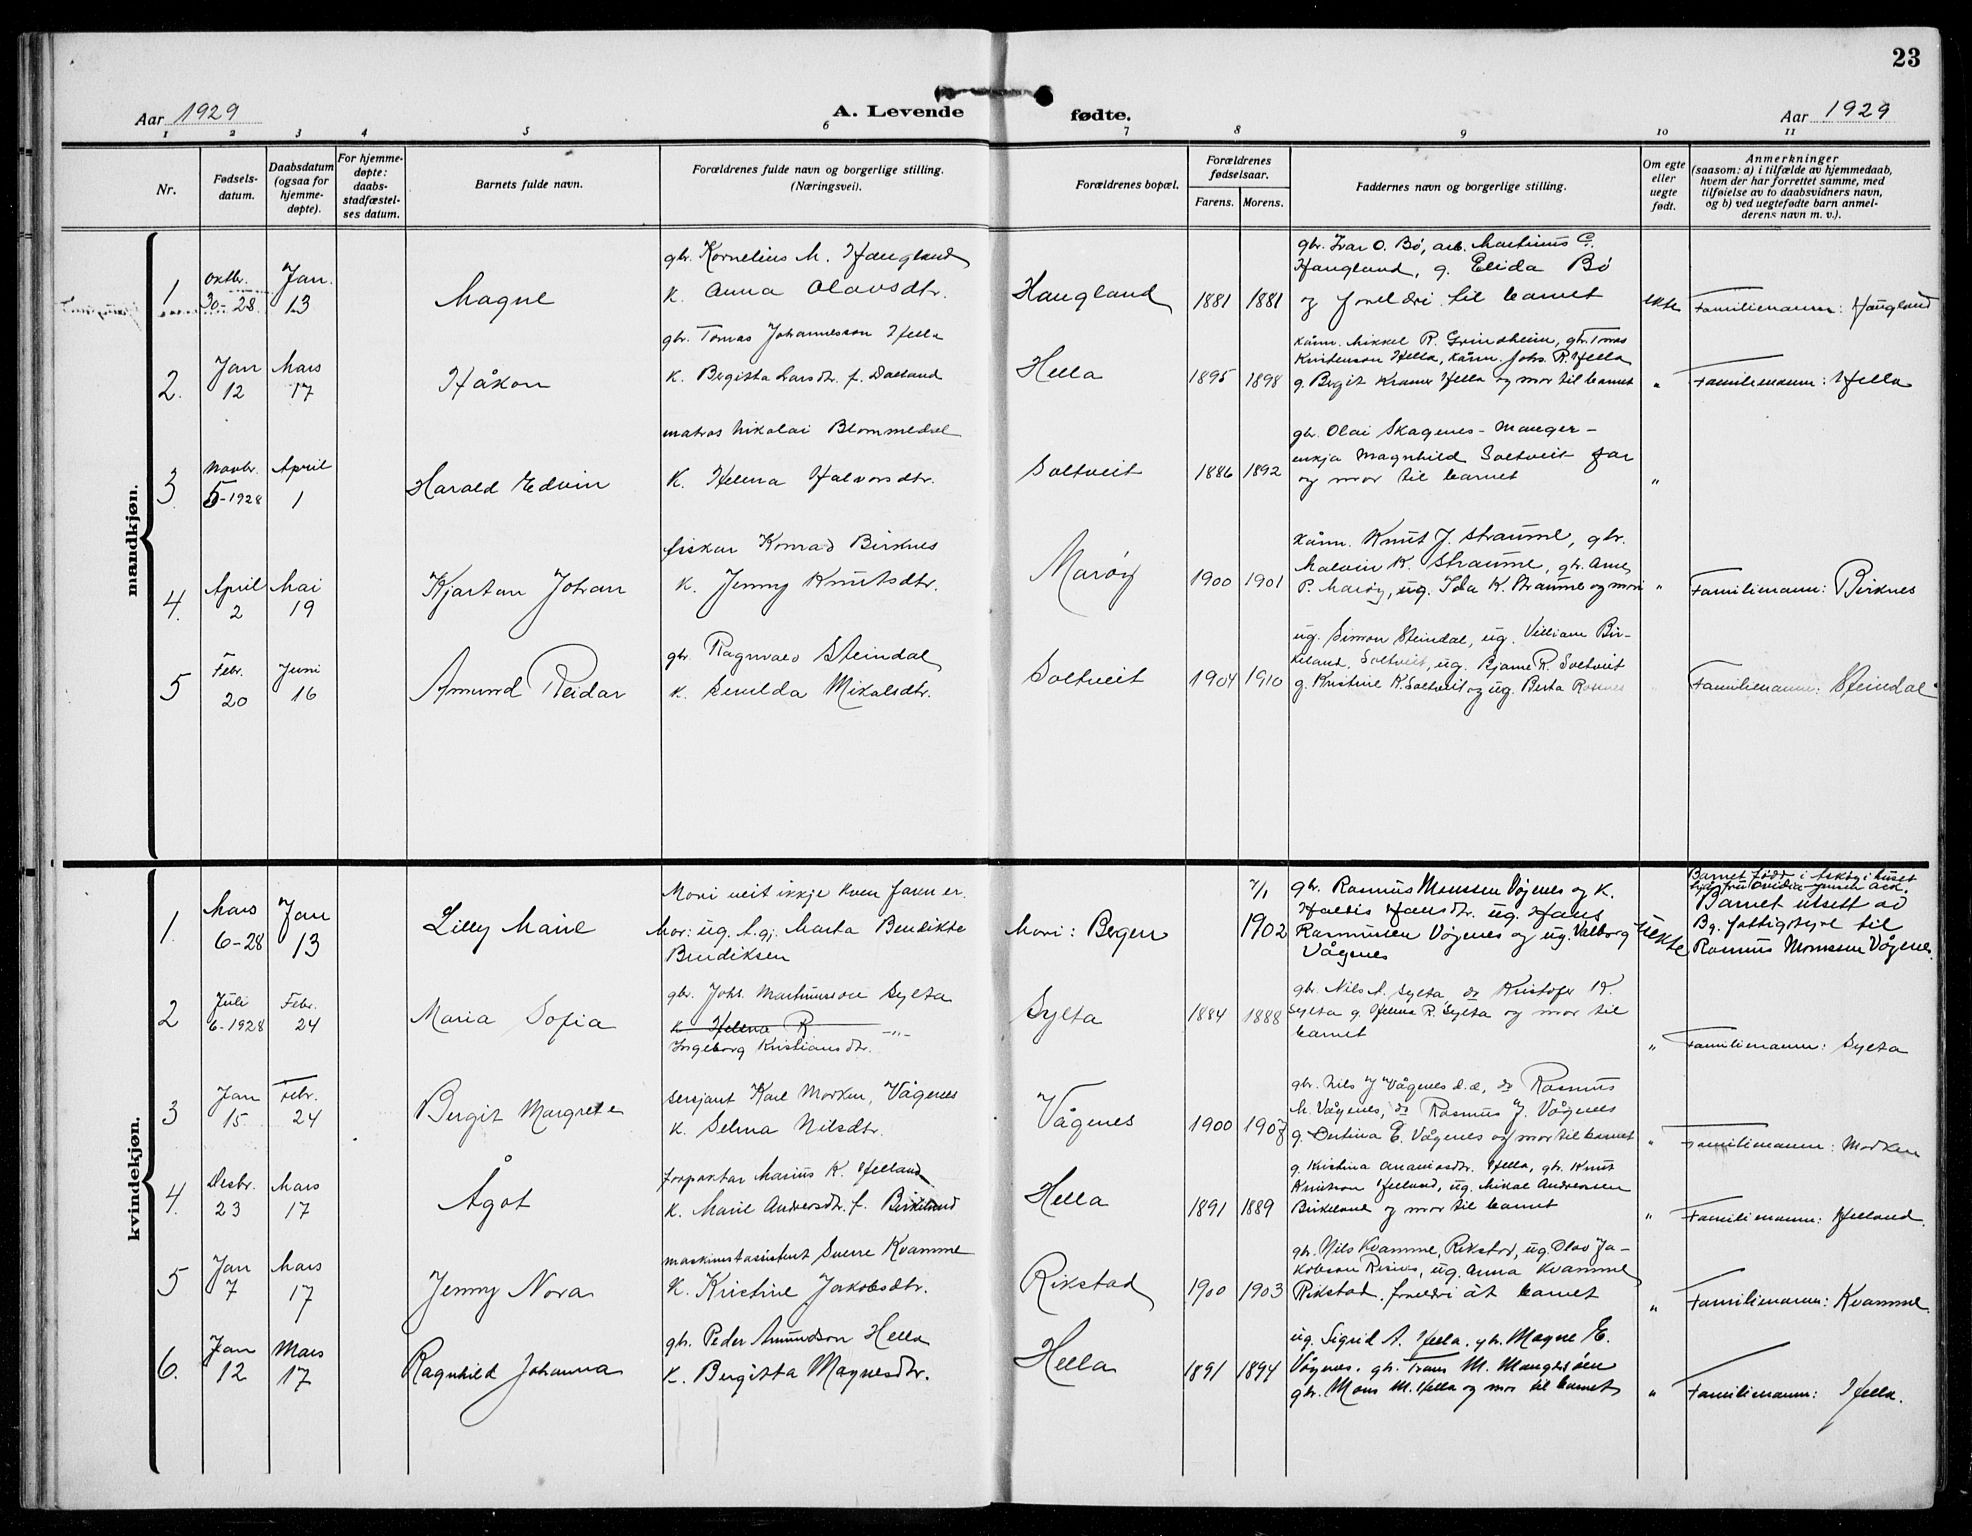 23
Aar 1929
A. Levende fødte.
Aar 1929
1 2 3 4 5 6 7 8 9 10 11
Nr.
Fødsels-
datum.
Daabsdatum
(ogsaa for
hjemme-
døpte).
For hjemme-
døpte:
daabs-
stadfæstel-
ses datum.
Barnets fulde navn.
Forældrenes fulde navn og borgerlige stilling.
(Næringsvei).
Forældrenes bopæl.
Forældrenes
fødselsaar.
Farens. Morens.
Faddernes navn og borgerlige stilling.
Om egte
eller
uegte
født.
Anmerkninger
(saasom: a) i tilfælde av hjemmedaab,
hvem der har forrettet samme, med
tilføielse av to daabsvidners navn,
og b) ved uegtefødte barn anmel-
derens navn m. v.).
mandkjøn.
1
oktbr.
30-28
Jan.
13
Magne
gbr. Kornelius M. Haugland
K. Anna Olavsdtr.
Haugland
1881
1881
gbr. Ivar O. Bø, arb. Martinus C.
Haugland, g. Elida Bø
og foreldri til barnet
ekte
Familienamn: Haugland
2.
Jan
12
Mars
17
Håkon
gbr. Tomas Johannesson Hella
K. Bergitta Larsdtr. f. Dalland
Hella
1895
1898
kånn. Mikkel R. Grindheim, gbr. Tomas
Kristenson Hella, kånn. Johs. R. Hella
g. Bergit Kramer Hella og mor til barnet
"
Familienamn: Hella
3
Novbr.
5-1928
April
1
Harald Edvin
matros Nikolai Blommedal
K. Helena Halvorsdtr.
Soltveit
1886
1892
gbr. Olai Skagenes - Manger -
enkja Magnhild Soltveit far
og mor til barnet
"
4.
April
2
Mai
19
Kjartan Johan
fiskar Konrad Birknes
K. Jenny Knutsdtr.
Marøy
1900
1901
kånn. Knut J. Straume, gbr.
Malvin K. Straume, gbr. Arne
P. Marøy, ug. Ida K. Straume og mori
"
Familienamn: Birknes
5
Febr.
20
Juni
16
Amund Reidar
gbr. Ragnvald Steindal
K. Senilda Mikalsdtr.
Soltveit
1904
1910
ug. Simon Steindal, ug. Villiam Bir-
keland, Soltveit, ug. Bjarne R. Soltveit
g. Kristine K. Soltveit og ug. Berta Rosnes
Familienamn: Steindal
kvindekjøn.
1.
Mars
6-28
Jan
13
Lilly Marie
Mori veit ikkje kven faren er.
Mor: ug. t.gj. Marta Bendikte
Bendiksen
Mori: Bergen
7/1
1902
gbr. Rasmus Monssen Vågenes og K.
Haldis Hansdtr. ug. Hans
Rasmussen Vågenes og ug. Valborg
Vågenes
uekte
Barnet født i
Barnet utsett av
Bg. fattigstyre til
Rasmus Monssen Vågenes.
2
Juli
6-1928
Febr.
24
Maria Sofia
gbr. Johs. Martinusson Sylta
K Helena R —"—
Ingeborg Kristiansdtr.
Sylta
1884
1888
gbr. Nils A. Sylta, do Kristofer K.
Sylta g. Helena R. Sylta og mor til
barnet
"
Familienamn: Sylta
3
Jan
15
Febr.
24
Bergit Margrete
sersjant Karl Morken, Vågenes
K. Selma Nilsdtr.
Vågenes
1900
1907
gbr. Nils J Vågenes d.e., do Rasmus
M. Vågenes, do Rasmus J. Vågenes
g. Dertina E. Vågenes og mor til barnet
"
Familienamn: Morken
4.
Desbr.
23
Mars
17
Ågot
forpaktar Marius K. Helland
K. Marie Andersdtr. f. Birkeland
Hella
1891
1889
g. Kristina Ananiasdtr. Hella, gbr. Knut
Knutson Helland, ug. Mikal Andreassen
Birkeland og mor til barnet
"
Familienamn: Helland.
5
Jan
7
Mars
17
Jenny Nora
maskinistassistent Sverre Kvamme
K. Kristine Jakobsdtr.
Rikstad
1900
1903
gbr. Nils Kvamme, Rikstad, ug. Olav Ja-
kobson Risnes, ug. Anna Kvamme
Rikstad. foreldri åt barnet
"
Familienamn: Kvamme.
6.
Jan
12
Mars
17
Ragnhild Johanna
gbr. Peder Amundson Hella
K. Bergitta Magnesdtr.
Hella
1891
1894
ug. Sigrid A. Hella. gbr. Magne E.
Vågenes. gbr. Frans M. Mangersøen
gbr. Mons M. Hella og mor til barnet
"
Familienamn: Hella.